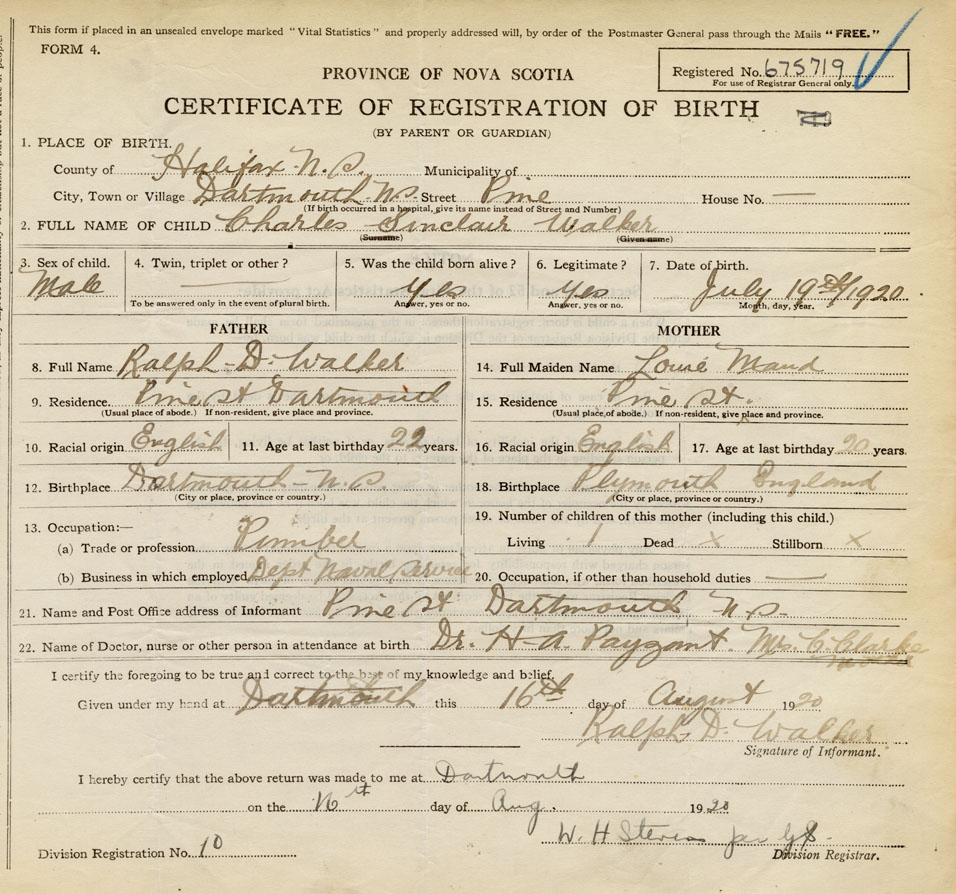 This form if placed in an unsealed envelope marked "Vital Statistics" and properly addressed will, by order of the Postmaster General pass through the Mails "FREE."
FORM 4.
Registered No. 675719
For use of Registrar General only.
PROVINCE OF NOVA SCOTIA
CERTIFICATE OF REGISTRATION OF BIRTH
(BY PARENT OR GUARDIAN)
1. PLACE OF BIRTH.
County of Halifax N.S. Municipality of
City, Town or Village Dartmouth N.S. Street Pine House No. —
(If birth occurred in a hospital, give its name instead of Street and Number)
2. FULL NAME OF CHILD Charles Sinclair Walker
(Surname) (Given name)
3. Sex of child. 4. Twin, triplet or other? 5. Was the child born alive? 6. Legitimate? 7. Date of birth.
Male Yes Yes July 19th/1920
To be answered only in the event of plural birth. Answer, yes or no. Answer, yes or no. Month, day, year.
FATHER
8. Full Name Ralph D. Walker
9. Residence. Pine St Dartmouth
(Usual place of abode.) If non-resident, give place and province.
10. Racial origin English 11. Age at last birthday 22 years.
12. Birthplace Dartmouth N.S.
(City or place, province or country.)
13. Occupation:—
(a) Trade or profession
(b) Business in which employed Dept Naval Service
MOTHER
14. Full Maiden Name Louie Maud
15. Residence Pine St.
(Usual place of abode.) If non-resident, give place and province.
16. Racial origin English 17. Age at last birthday 20 years.
18. Birthplace Plymouth England
(City or place, province or country.)
19. Number of children of this mother (including this child.)
Living 1 Dead x Stillborn x
20. Occupation, if other than household duties —
21. Name and Post Office address of Informant Pine St Dartmouth N.S.
22. Name of Doctor, nurse or other person in attendance at birth Dr. H. A. Payzant. Mrs. C. Clarke
I certify the foregoing to be true and correct to the best of my knowledge and belief.
Given under my hand at Dartmouth this 16th day of August 1920
Ralph D. Walker
Signature of Informant.
I hereby certify that the above return was made to me at Dartmouth
on the day of Aug. 1920
W. H. Stevens
Division Registrar.
Division Registration No. 10